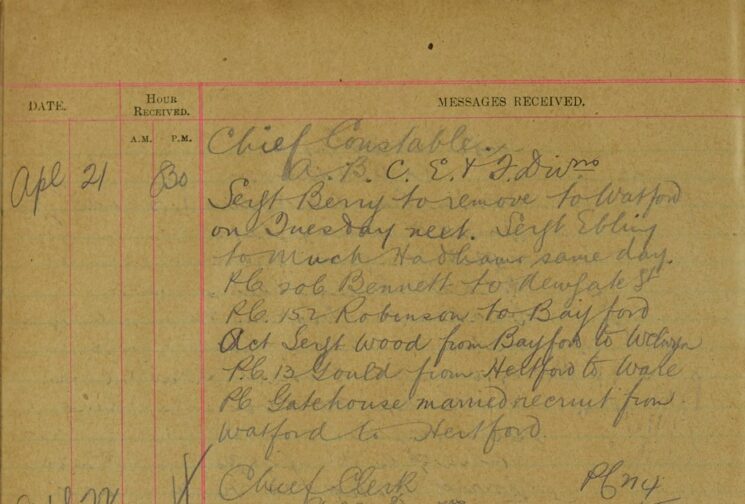 DATE.
HOUR RECEIVED.
MESSAGES RECEIVED.
A.M. P.M.
Chief Constable.
A. B. C. E. & F. Divns
Apl 21 830
Sergt Berry to remove to Watford
on Tuesday next. Sergt Ebling
to Much Hadham same day.
P.C. 206 Bennett to Newgate St
P.C. 152 Robinson to Bayford
Act Sergt Wood from Bayford to Welwyn
P.C. 13 Gould from Hertford to Ware
PC Gatehouse married recruit from
Watford to Hertford.
Chief Clerk